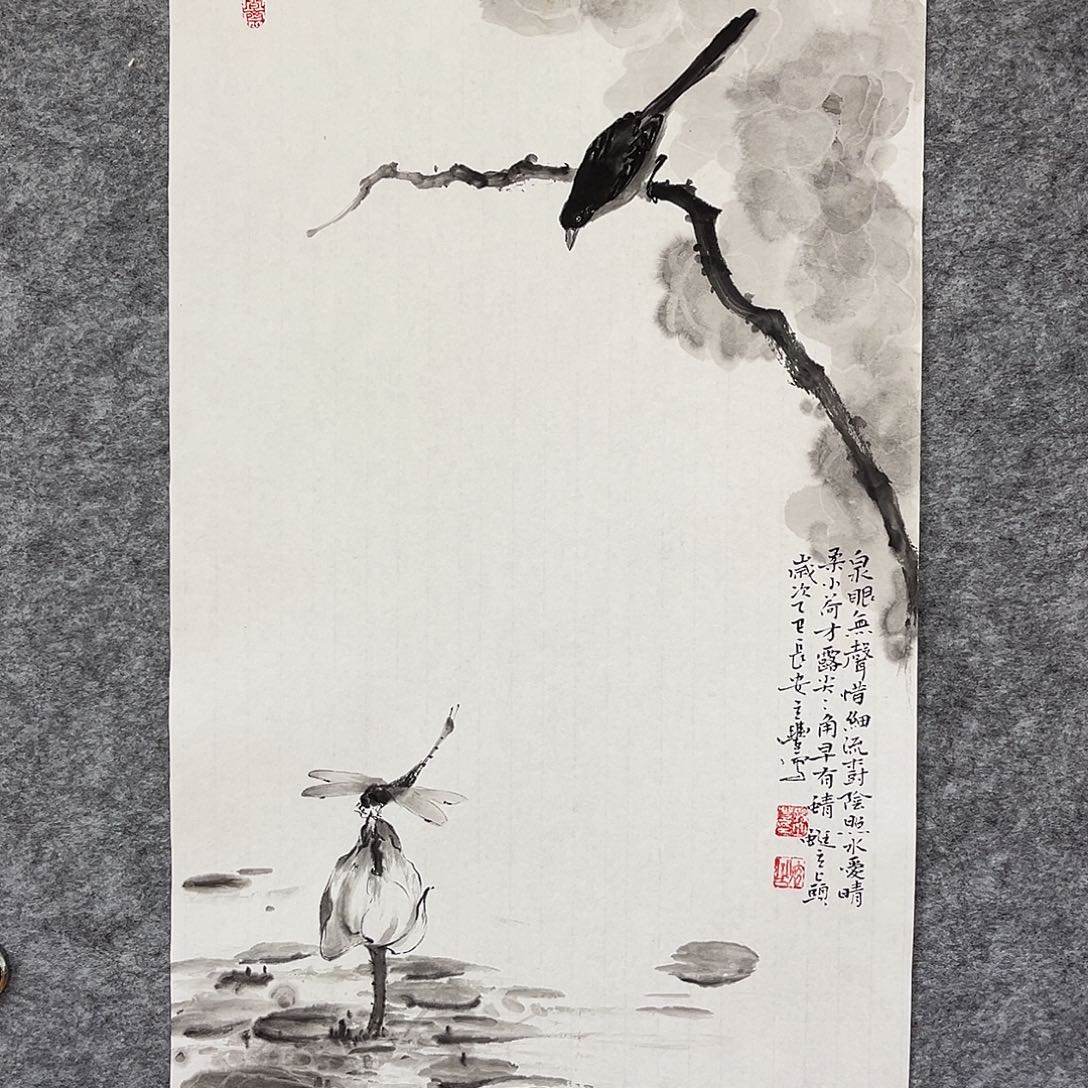 泉眼無聲惜細流樹陰照水愛晴
柔小荷才露尖々角早有蜻蜓立上頭
歲次乙巳長安立豐寫